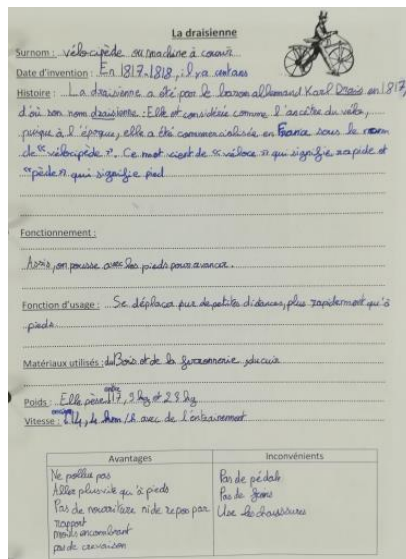 La draisienne
Surnom : vélocipède ou machine à courir
Date d'invention : En 1817-1818, il y a
Histoire : La draisienne a été par le baron allemand Karl Drais en 1817,
d'où son nom draisienne : Elle est considérée comme l'ancêtre du vélo,
puisque à l'époque, elle a été commercialisée en France sous le nom
de "vélocipède". Ce mot vient de "véloce" qui signifie rapide et
"pède" qui signifie pied
Fonctionnement :
Assis, on pousse avec les pieds pour avancer.
Fonction d'usage : Se déplacer sur de petites distances, plus rapidement qu'à
pieds
Matériaux utilisés : du Bois et de la ferronnerie, du cuir
Poids : Elle pèse entre 17, 3 kg et 28 kg
Vitesse : 14, 4 km/h avec de l'entrainement
Avantages
Ne pollue pas
Aller plus vite qu'à pieds
Pas de nourriture ni de repos par
rapport
moins encombrant
pas de crevaison
Inconvénients
Pas de pédale
Pas de freins
Use les chaussures